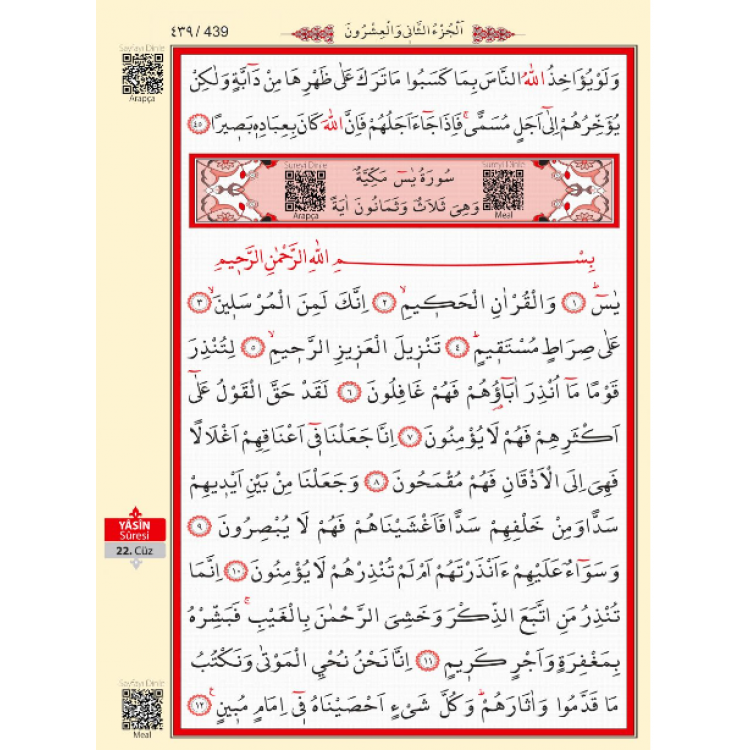 ٤٣٩ / 439
اَلْجُزْءُ الثَّانِي وَالْعِشْرُونَ
Sayfayı Dinle
Arapça
وَلَوْ يُؤَاخِذُ اللّٰهُ النَّاسَ بِمَا كَسَبُوا مَا تَرَكَ عَلٰى ظَهْرِهَا مِنْ دَٓابَّةٍ وَلٰكِنْ
يُؤَخِّرُهُمْ اِلٰٓى اَجَلٍ مُسَمًّىۚ فَاِذَا جَٓاءَ اَجَلُهُمْ فَاِنَّ اللّٰهَ كَانَ بِعِبَادِه۪ بَص۪يرًا ﴿٤٥﴾
Sureyi Dinle
Arapça
سُورَةُ يٰسٓ مَكِّيَّةٌ
وَهِيَ ثَلَاثٌ وَثَمَانُونَ اٰيَةً
Sureyi Dinle
Meal
بِسْمِ اللّٰهِ الرَّحْمٰنِ الرَّح۪يمِ
يٰسٓۜ ﴿١﴾ وَالْقُرْاٰنِ الْحَك۪يمِۙ ﴿٢﴾ اِنَّكَ لَمِنَ الْمُرْسَل۪ينَۙ ﴿٣﴾
عَلٰى صِرَاطٍ مُسْتَق۪يمٍۜ ﴿٤﴾ تَنْز۪يلَ الْعَز۪يزِ الرَّح۪يمِۙ ﴿٥﴾ لِتُنْذِرَ
قَوْمًا مَٓا اُنْذِرَ اٰبَٓاؤُ۬هُمْ فَهُمْ غَافِلُونَ ﴿٦﴾ لَقَدْ حَقَّ الْقَوْلُ عَلٰٓى
اَكْثَرِهِمْ فَهُمْ لَا يُؤْمِنُونَ ﴿٧﴾ اِنَّا جَعَلْنَا ف۪ٓي اَعْنَاقِهِمْ اَغْلَالًا
فَهِيَ اِلَى الْاَذْقَانِ فَهُمْ مُقْمَحُونَ ﴿٨﴾ وَجَعَلْنَا مِنْ بَيْنِ اَيْد۪يهِمْ
سَدًّا وَمِنْ خَلْفِهِمْ سَدًّا فَاَغْشَيْنَاهُمْ فَهُمْ لَا يُبْصِرُونَ ﴿٩﴾
وَسَوَٓاءٌ عَلَيْهِمْ ءَاَنْذَرْتَهُمْ اَمْ لَمْ تُنْذِرْهُمْ لَا يُؤْمِنُونَ ﴿١٠﴾ اِنَّمَا
تُنْذِرُ مَنِ اتَّبَعَ الذِّكْرَ وَخَشِيَ الرَّحْمٰنَ بِالْغَيْبِۚ فَبَشِّرْهُ
بِمَغْفِرَةٍ وَاَجْرٍ كَر۪يمٍ ﴿١١﴾ اِنَّا نَحْنُ نُحْيِ الْمَوْتٰى وَنَكْتُبُ
مَا قَدَّمُوا وَاٰثَارَهُمْۜ وَكُلَّ شَيْءٍ اَحْصَيْنَاهُ ف۪ٓي اِمَامٍ مُب۪ينٍ۟ ﴿١٢﴾
YÂSÎN
Sûresi
22. Cüz
Sayfayı Dinle
Meal